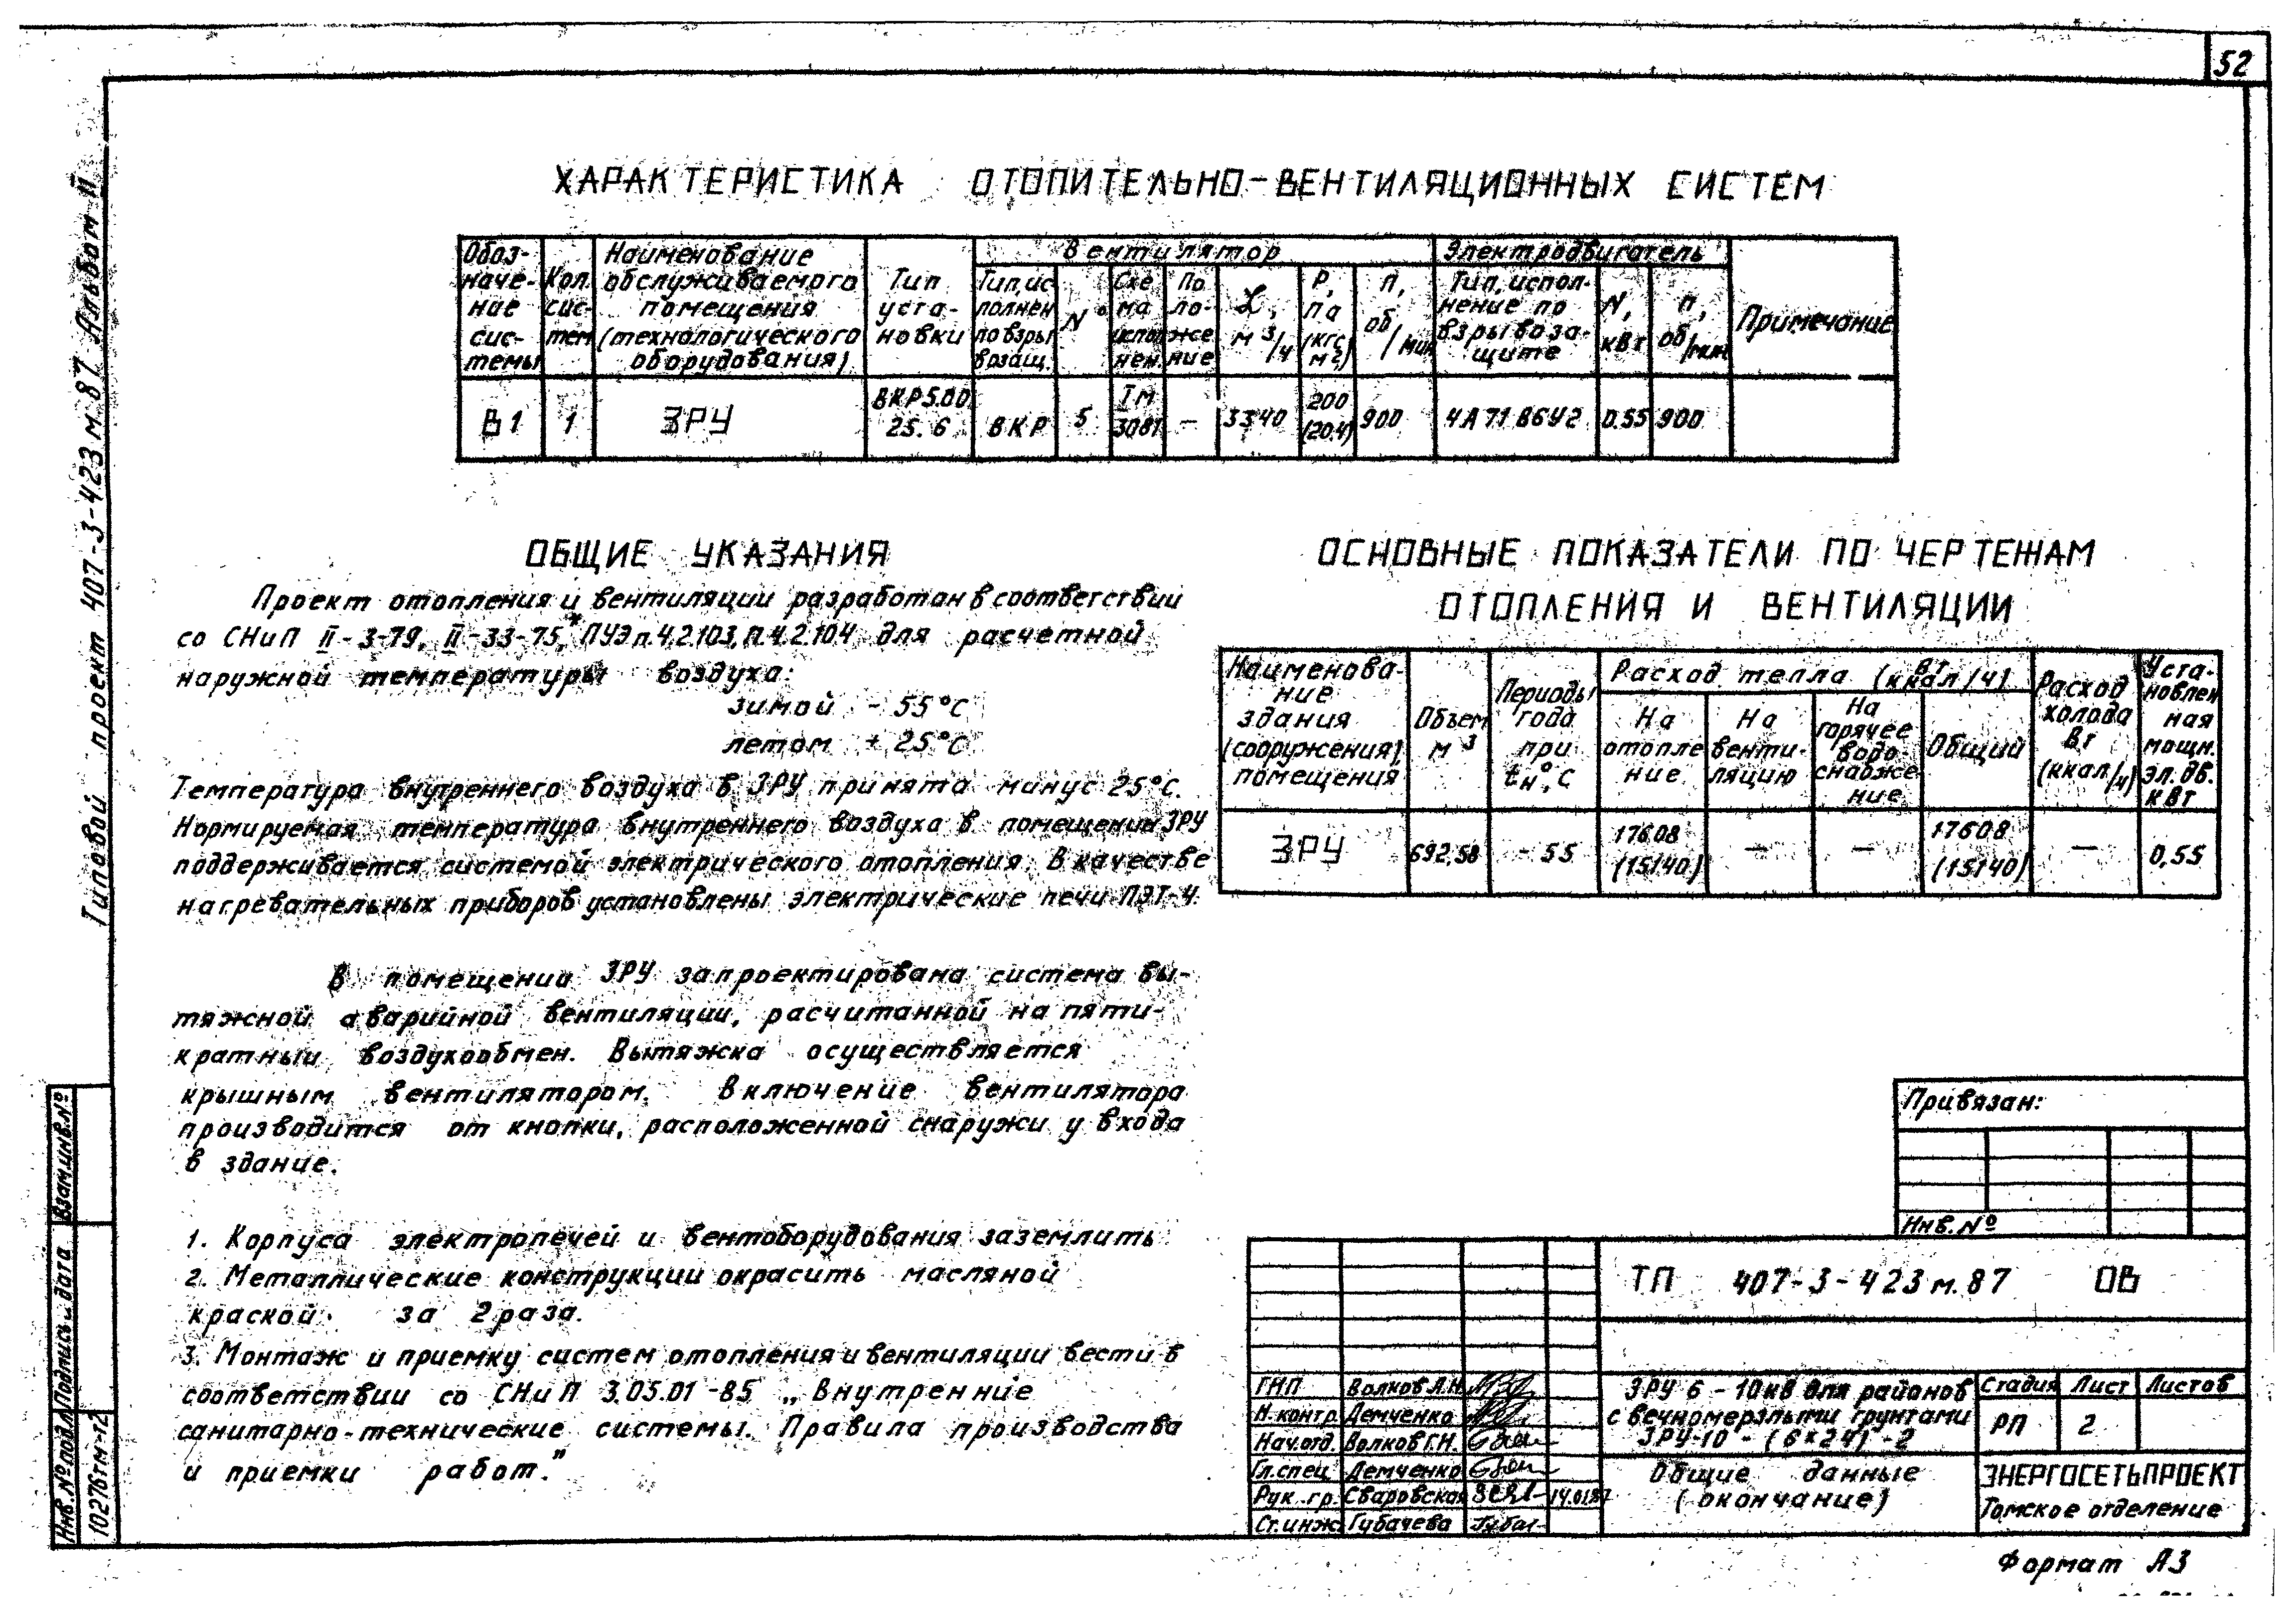 52
Типовой проект 407-3-423 м.87 Альбом II
ХАРАКТЕРИСТИКА ОТОПИТЕЛЬНО-ВЕНТИЛЯЦИОННЫХ СИСТЕМ
Обоз-
наче-
ние
сис-
темы
Кол.
сис-
тем
Наименование
обслуживаемого
помещения
(технологического
оборудования)
Тип
уста-
новки
Вентилятор
Тип, ис
полнен
по взры
возащ.
N°
Схе
ма
испол
нен.
По
ло-
же
ние
L,
м3/ч
Р,
Па
(кгс
м2)
п,
об/мин
Электродвигатель
Тип, испол-
нение по
взрывоза-
щите
N,
кВт
п,
об/мин
Примечание
В1 1 ЗРУ ВКР5.00 25.6 ВКР 5 – 3340 200 (20.4) 900 4А71В6У2 0.55 900
ОБЩИЕ УКАЗАНИЯ
Проект отопления и вентиляции разработан в соответствии
со СНиП II-3-79, II-33-75,* ПУЭ п.4.2.103, п.4.2.104 для расчетной
наружной температуры воздуха:
зимой - 55°С
летом + 25°С
Температура внутреннего воздуха в ЗРУ принята минус 25°С.
Нормируемая температура внутреннего воздуха в помещении ЗРУ
поддерживается системой электрического отопления. В качестве
нагревательных приборов установлены электрические печи ПЭТ-4.
В помещении ЗРУ запроектирована система вы-
тяжной аварийной вентиляции, расчитанной на пяти-
кратный воздухообмен. Вытяжка осуществляется
крышным вентилятором. Включение вентилятора
производится от кнопки, расположенной снаружи у входа
в здание.
1. Корпуса электропечей и вентоборудования заземлить
2. Металлические конструкции окрасить масляной
краской за 2 раза.
3. Монтаж и приемку систем отопления и вентиляции вести в
соответствии со СНиП 3.05.01-85 „Внутренние
санитарно-технические системы. Правила производства
и приемки работ."
ОСНОВНЫЕ ПОКАЗАТЕЛИ ПО ЧЕРТЕЖАМ
ОТОПЛЕНИЯ И ВЕНТИЛЯЦИИ
Наименова-
ние
здания
(сооружения),
помещения
Объем
м3
Периоды
года
при
tн°,С
Расход тепла Вт (ккал/ч)
На
отопле
ние
На
венти-
ляцию
На
горячее
водо
снабже-
ние
Общий
Расход
холода
Вт
(ккал/ч)
Уста-
новлен
ная
мощн.
эл.дв.
кВт
ЗРУ 692,58 - 55 17608 (15140) – – 17608 (15140) – 0,55
Привязан:
Инв.№
ТП 407-3-423м.87 ОВ
ГИП Волков Л.Н.
Н.контр. Демченко
Нач.отд. Волков Г.Н.
Гл.спец Демченко
Рук.гр. Сваровская 14.01.87
Ст.инж. Губачева
ЗРУ 6-10кВ для районов
с вечномерзлыми грунтами
ЗРУ-10-(6×24)-2
Стадия Лист Листов
РП 2
Общие данные
(окончание)
ЭНЕРГОСЕТЬПРОЕКТ
Томское отделение
Формат А3
Взам.инв.№
Подпись и дата
Инв.№подл.
10276тм-т2